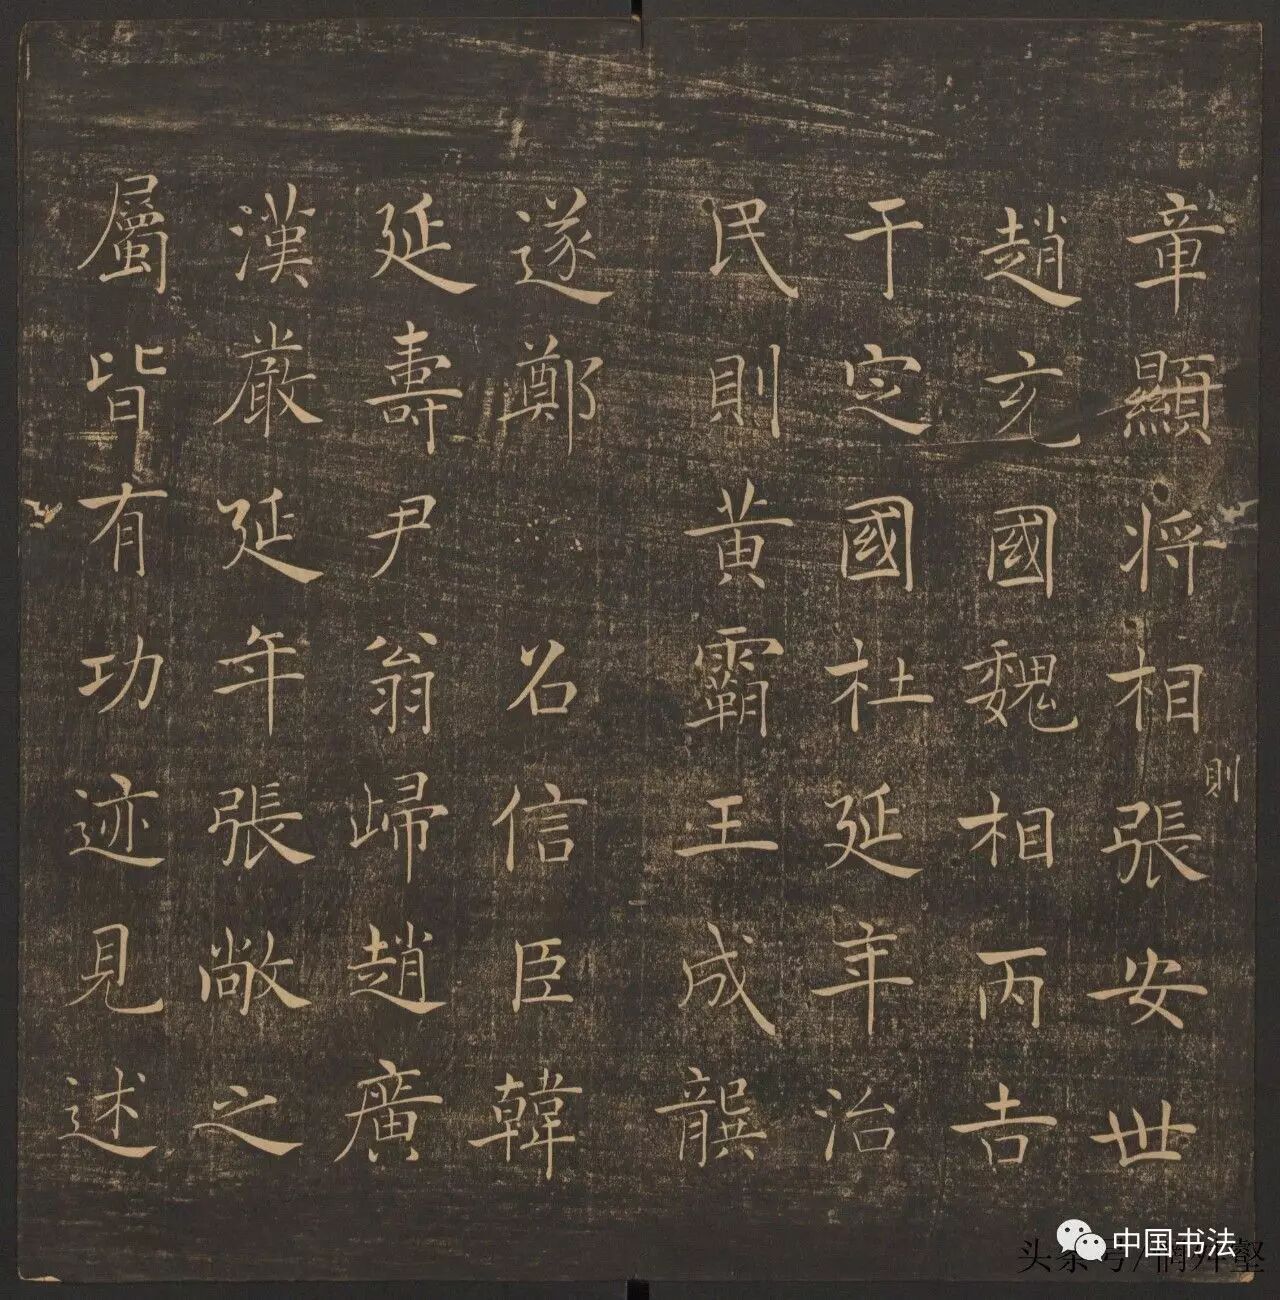 章顯将相則張安世
趙充國魏相丙吉
于定國杜延年治
民則黄霸王成龔
遂鄭召信臣韓
延壽尹翁歸趙廣
漢嚴延年張敞之
屬皆有功迹見述
中国书法
头条号/